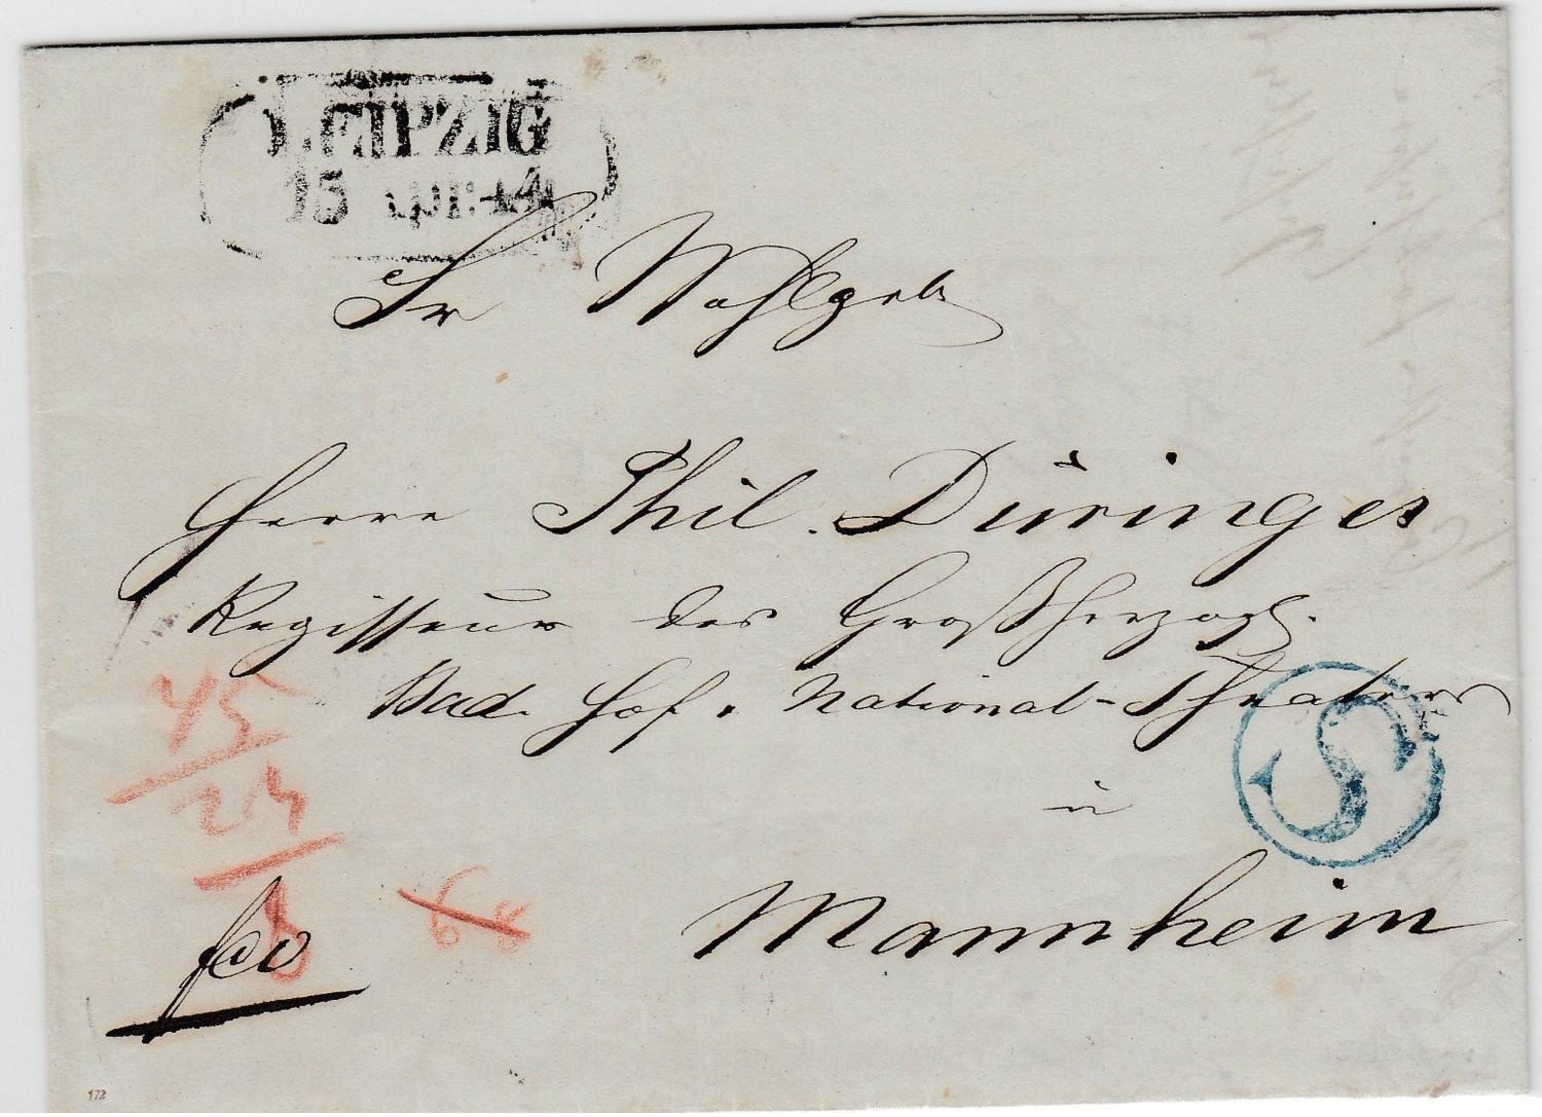 LEIPZIG
15 Apr: 44
Sr Wohlgeb
Herrn Phil. Düringer
Regisseur des Großherzogl.
Bad. Hof. National-Theaters
in
Mannheim
S
45
fco
8
68
172